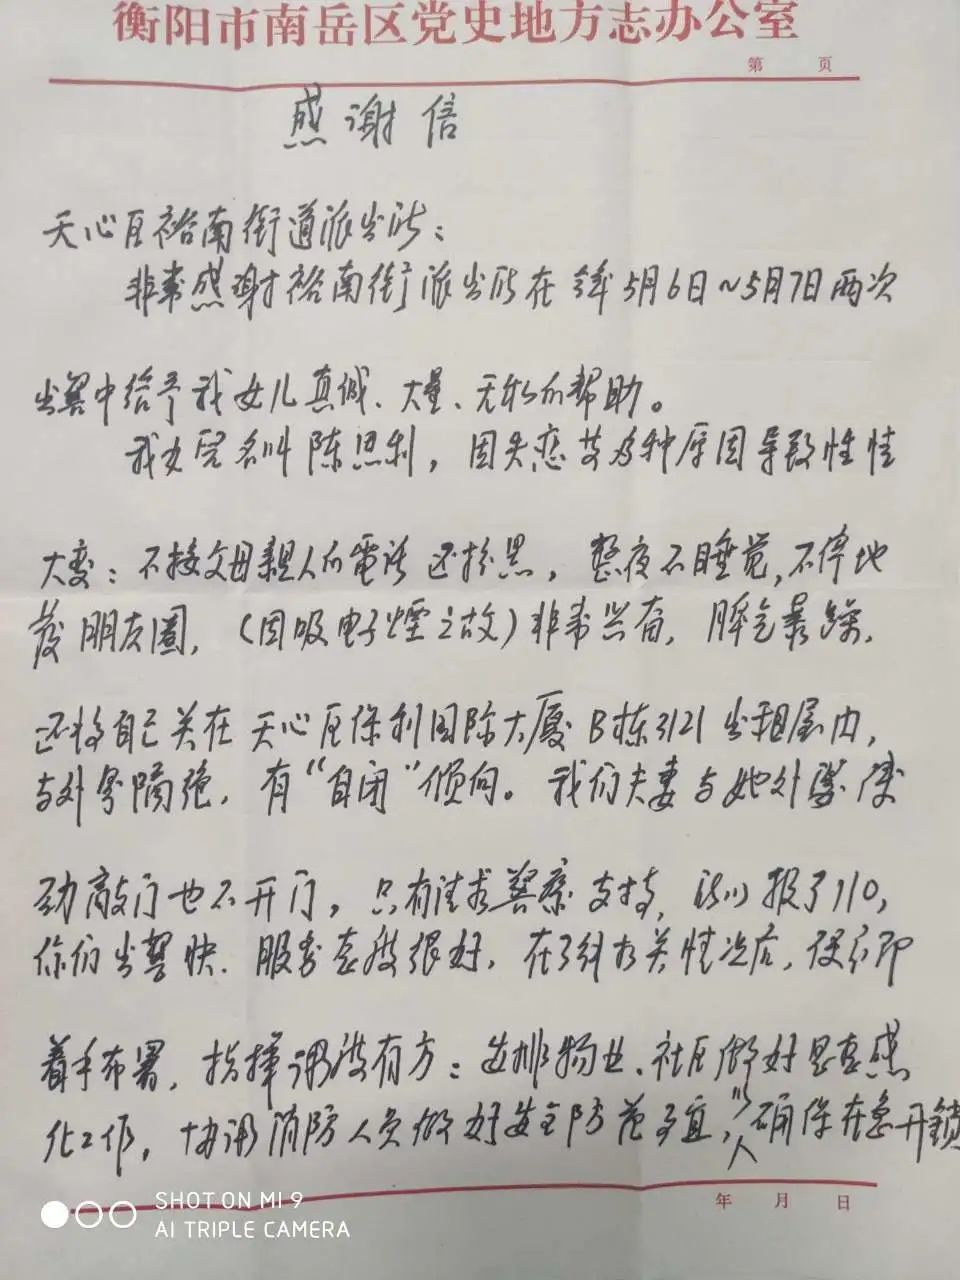 衡阳市南岳区党史地方志办公室
第 页
感谢信
天心区裕南街道派出所：
非常感谢裕南街派出所在 5月6日～5月7日两次
出警中给予我女儿真诚、大量、无私的帮助。
我女儿名叫陈思利，因失恋等多种原因导致性情
大变：不接父母親人的電话还拉黑，整夜不睡觉，不停地
发朋友圈，（因吸电子煙之故）非常兴奋，脾气暴躁，
还将自己关在天心区保利国际大厦B栋3121出租屋内，
与外界隔绝，有“自闭”倾向。我们夫妻与她外婆使
劲敲门也不开门，只有请求警察支持，所以报了110，
你们出警快、服务态度很好，在了解相关情况后，便立即
着手布署，指挥调度有方：安排物业、社区做好思想感
化工作，协调消防人员做好安全防范事宜，以确保在急开锁
人
年 月 日
SHOT ON MI 9
AI TRIPLE CAMERA